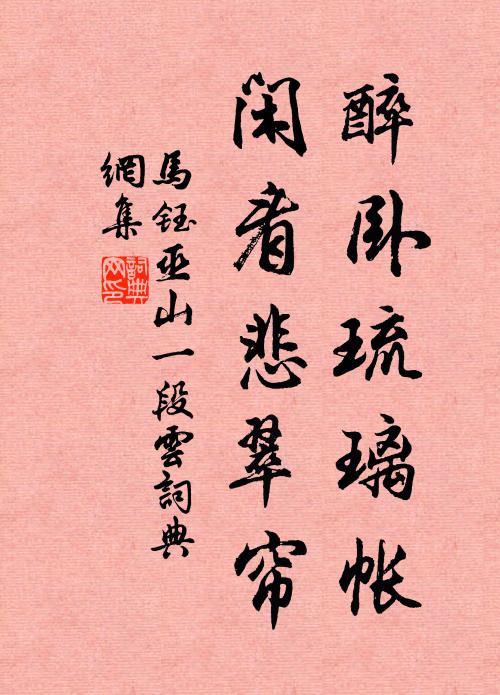 醉卧琉璃帐
闲看悲翠帘
馬鈺巫山一段雲詞典
網集
詞典網印